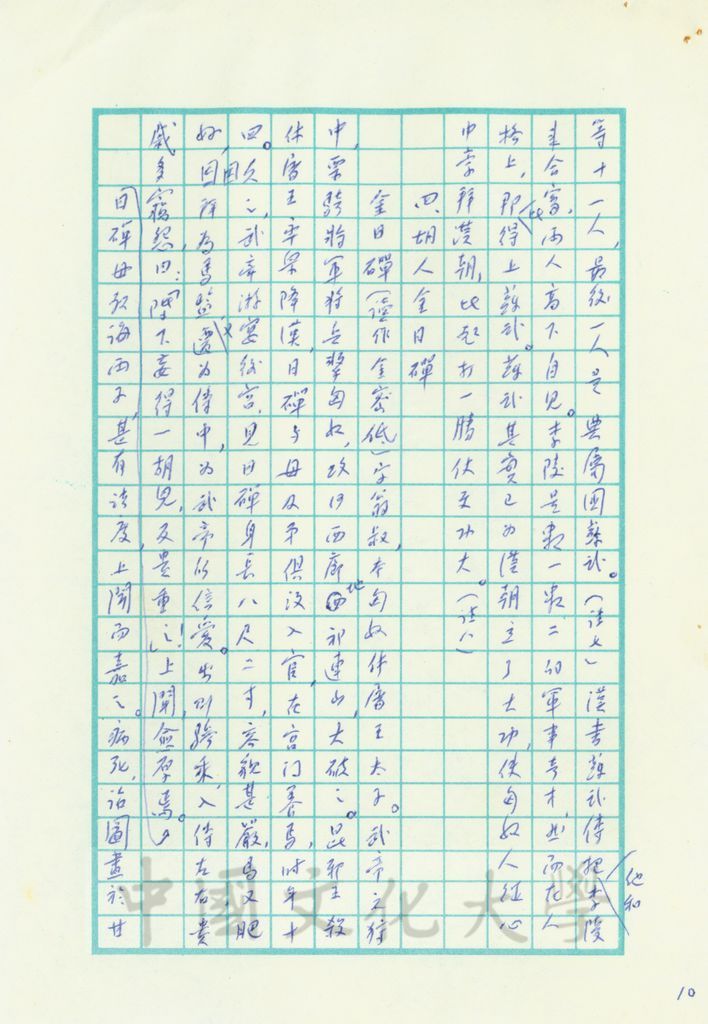 等十一人，最後一人是典屬國蘇武。（註七）漢書蘇武傳把他和李陵
主合寫，兩人高下自見。李陵是數一數二的軍事奇才，然而在人
格上，即此得上蘇武。蘇武其實已為漢朝立了大功，使匈奴人從心
中崇拜漢朝，比起打一勝仗更功大。（註八）
四、胡人金日磾
金日磾（讀作金密低）字翁叔，本匈奴休屠王太子。武帝元狩
中，票騎將軍將兵擊匈奴，攻河西廊地祁連山，大破之。昆邪王殺
休屠王率眾降漢，日磾与母及弟俱沒入官，在宮門養馬，時年十
四。久之，武帝游宴後宮，見日磾身長八尺二寸，容貌甚嚴，馬又肥
好，因拜為馬監，又遷為侍中，為武帝所信愛。出則驂乘，入侍左右，貴
戚多竊怨曰：「陛下妄得一胡兒，反貴重之！」上聞，愈厚焉。
日磾母教誨兩子，甚有法度，上聞而嘉之。病死，詔圖畫於甘
中國文化大學
10